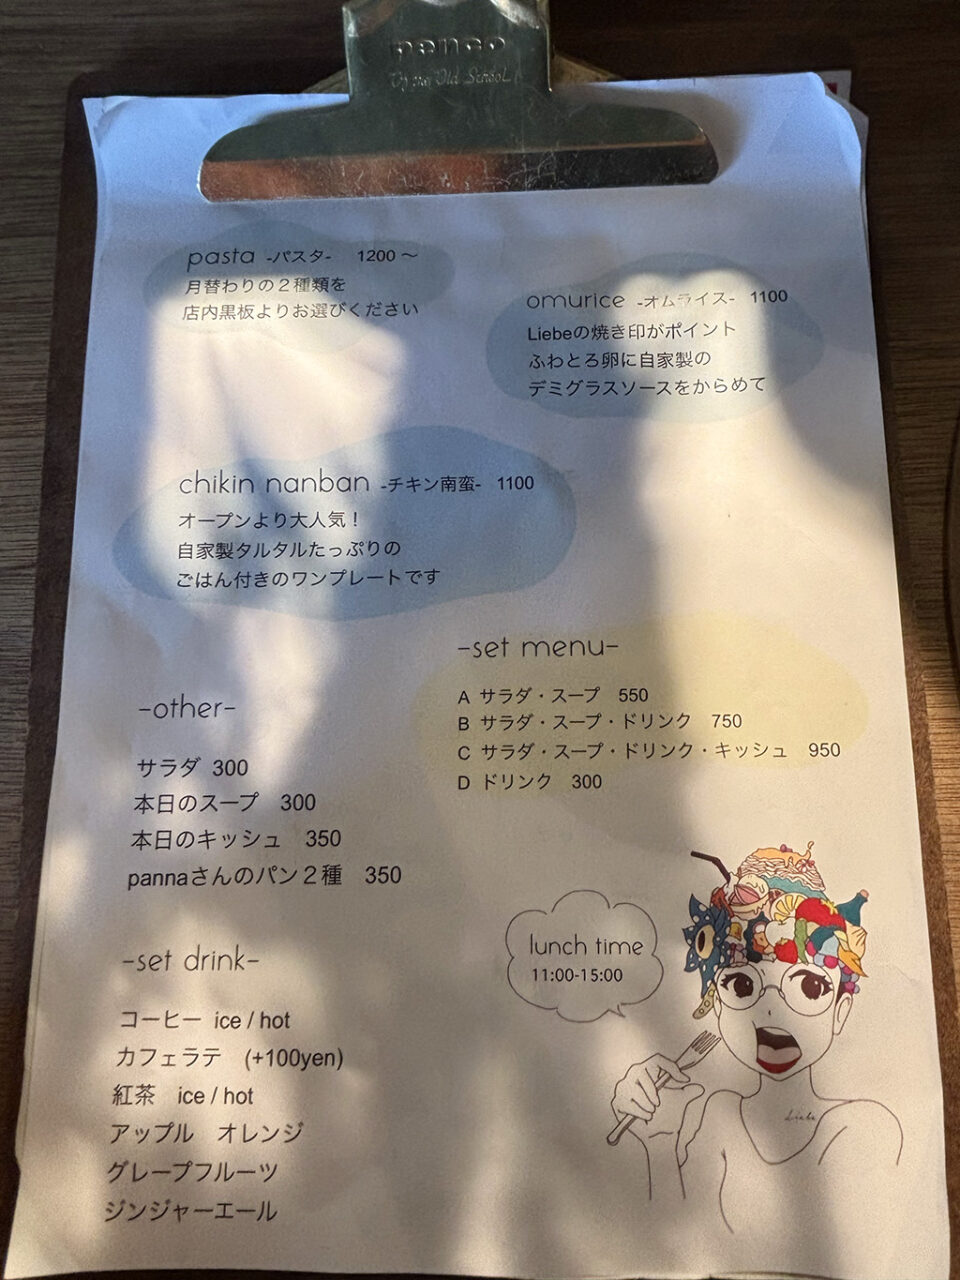 penco
By the Old School
pasta -パスタ- 1200～
月替わりの２種類を
店内黒板よりお選びください
omurice -オムライス- 1100
Liebeの焼き印がポイント
ふわとろ卵に自家製の
デミグラスソースをからめて
chikin nanban -チキン南蛮- 1100
オープンより大人気！
自家製タルタルたっぷりの
ごはん付きのワンプレートです
-set menu-
A サラダ・スープ 550
B サラダ・スープ・ドリンク 750
C サラダ・スープ・ドリンク・キッシュ 950
D ドリンク 300
-other-
サラダ 300
本日のスープ 300
本日のキッシュ 350
pannaさんのパン２種 350
-set drink-
コーヒー ice / hot
カフェラテ (+100yen)
紅茶 ice / hot
アップル オレンジ
グレープフルーツ
ジンジャーエール
lunch time
11:00-15:00
Liebe